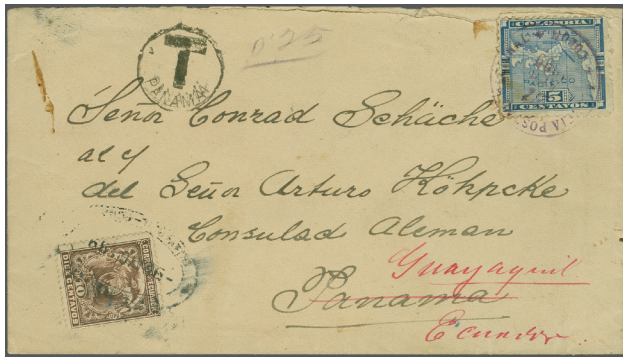 T
PANAMA
0'25
COLOMBIA
COLON
5 5
CENTAVOS
Señor Conrad Schüche
al c/
del Señor Arturo Köhpcke
Consulad Aleman
Guayaquil
Panama
Ecuador.
10
DIEZ CENTAVOS